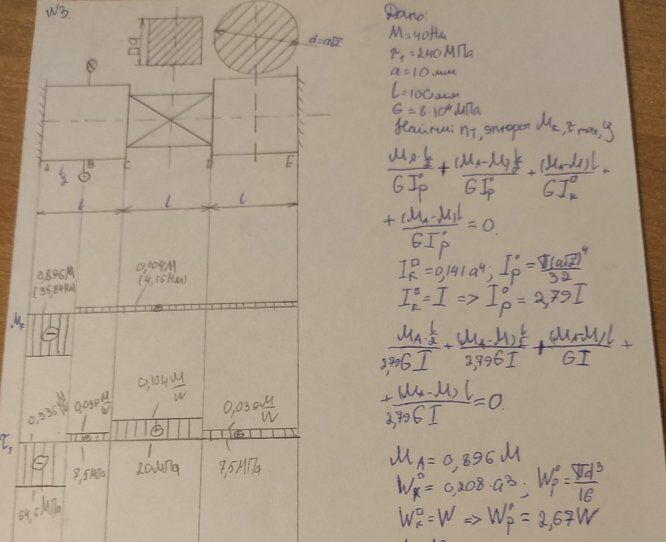 №3.
d=a√2
A B C D E
l/2
l l l
0,896M
(35,84Нм)
0,104M
(4,16Нм)
Mк
0,104 M/W
0,039 M/W
0,039 M/W
7,5МПа
20МПа
7,5МПа
Дано:
M=40Нм
τт=240МПа
a=10мм
l=100мм
G=8·10⁴МПа
Найти: nт, эпюры Mк, τmax, φ
MA·l/2 / GIp° + (MA-M)l/2 / GIp° + (MA-M)l / GIк□ +
+ (MA-M)l / GIp° = 0.
Iк□=0,141a⁴; Ip°= π(a√2)⁴/32
Iк□=I => Ip°=2,79I
MA·l/2 / 2,79GI + (MA-M)l/2 / 2,79GI + (MA-M)l / GI +
+ (MA-M)l / 2,79GI = 0.
MA=0,896M
Wк□=0,208·a³; Wp°= πd³/16
Wк□=W => Wp°=2,67W